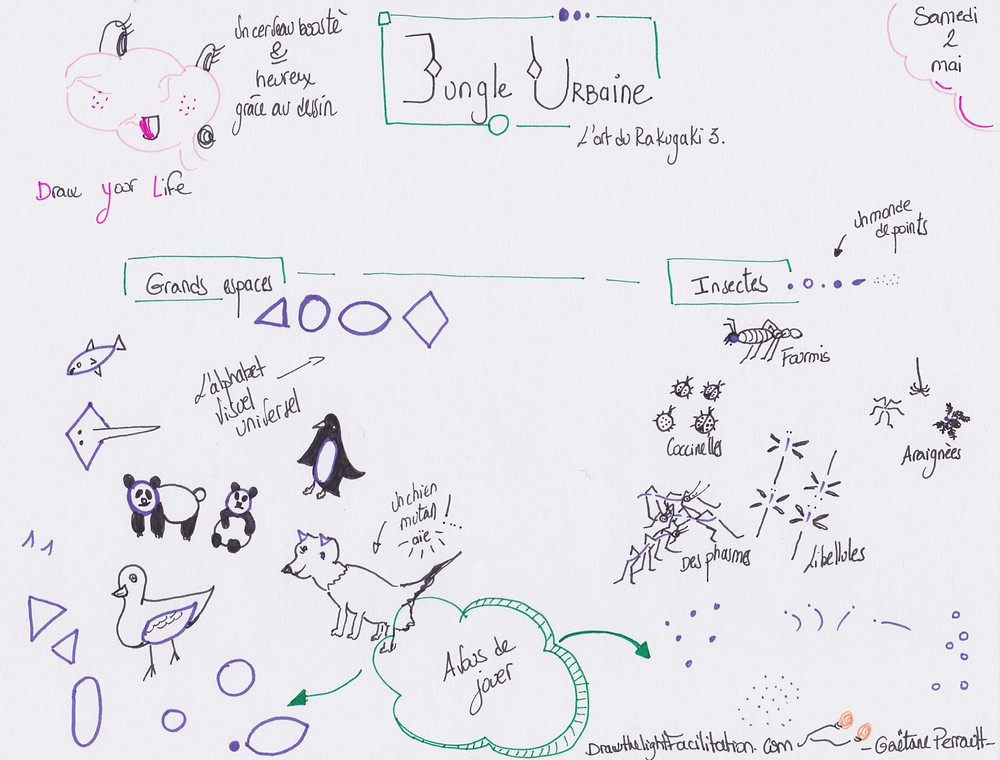 Un cerveau boosté
&
heureux
grâce au dessin
Draw your Life
Jungle Urbaine
L'art du Rakugaki 3.
Samedi
2
mai
Grands espaces
L'alphabet
visuel
universel
un chien
mutan !
aïe...
Insectes
un monde
de points
Fourmis
Coccinelles
Araignées
Des phasmes
Libellules
A vous de
jouer
Drawthelightfacilitation.com
- Gaëtane Perrault -